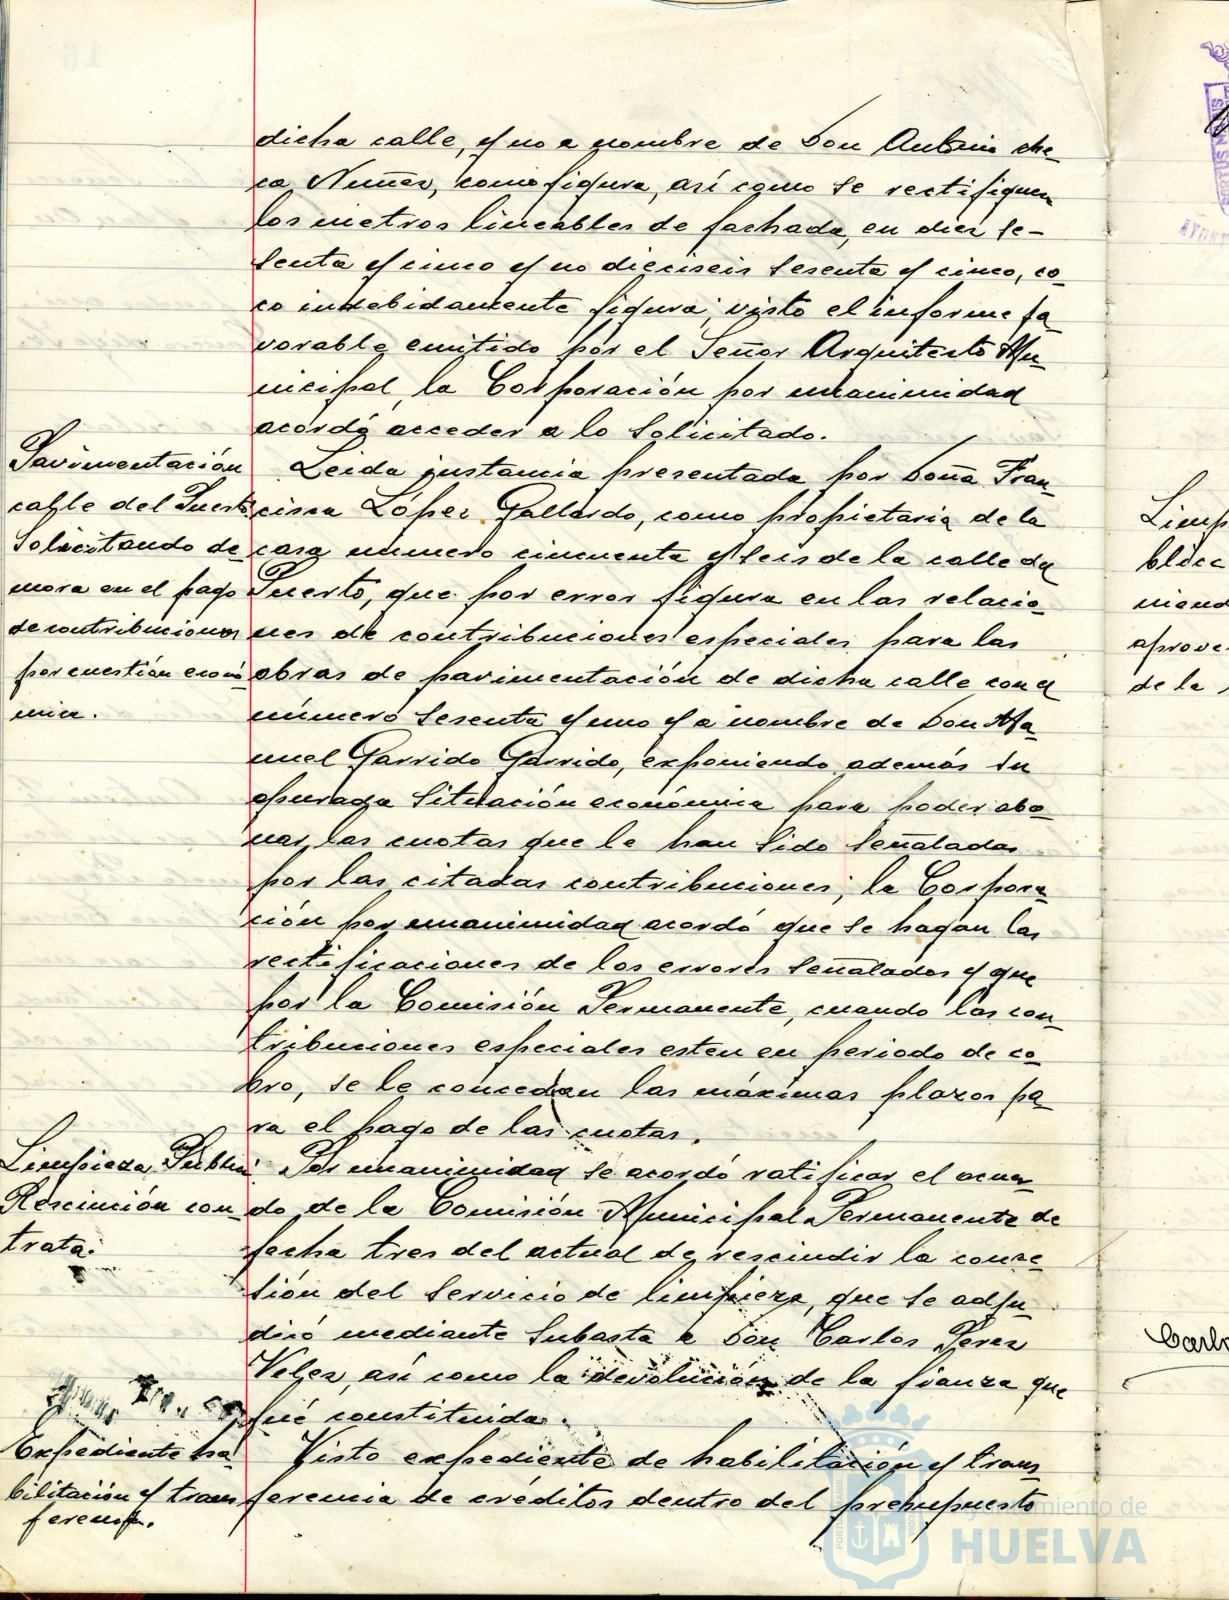 dicha calle, y no a nombre de Don Antonio che-
ca Nuñez, como figura, así como se rectifiquen
los metros lineables de fachada, en diez se-
senta y cinco y no dieciseis sesenta y cinco, co-
co indebidamente figura; visto el informe fa-
vorable emitido por el Señor Arquitecto Mu-
nicipal, la Corporación por unanimidad
acordó acceder a lo solicitado.
Pavimentación
calle del Puerto
Solicitando de
mora en el pago
de contribuciones
por cuestión econó
mica.
Leida instancia presentada por Doña Fran-
cisca López Gallardo, como propietaria de la
casa número cincuenta y seis de la calle del
Puerto, que por error figura en las relacio-
nes de contribuciones especiales para las
obras de pavimentación de dicha calle con el
número sesenta y uno y a nombre de Don Ma-
nuel Garrido Garrido, exponiendo además su
apurada situación económica para poder abo-
nar las cuotas que le han sido señaladas
por las citadas contribuciones; la Corpora-
ción por unanimidad acordó que se hagan las
rectificaciones de los errores señalados y que
por la Comisión Permanente, cuando las con-
tribuciones especiales esten en periodo de co-
bro, se le concedan las máximas plazos pa-
ra el pago de las cuotas.
Limpieza Publica
Rescinción con-
trata.
Por unanimidad se acordó ratificar el acuer-
do de la Comisión Municipal Permanente de
fecha tres del actual de rescindir la conce-
sión del servicio de limpieza, que se adju-
dicó mediante subasta a Don Carlos Perez
Velez, así como la devolución de la fianza que
fué constituida.
Expediente ha-
bilitación y trans
ferencia.
Visto expediente de habilitación y trans-
ferencia de créditos dentro del presupuesto
Ayuntamiento de
HUELVA